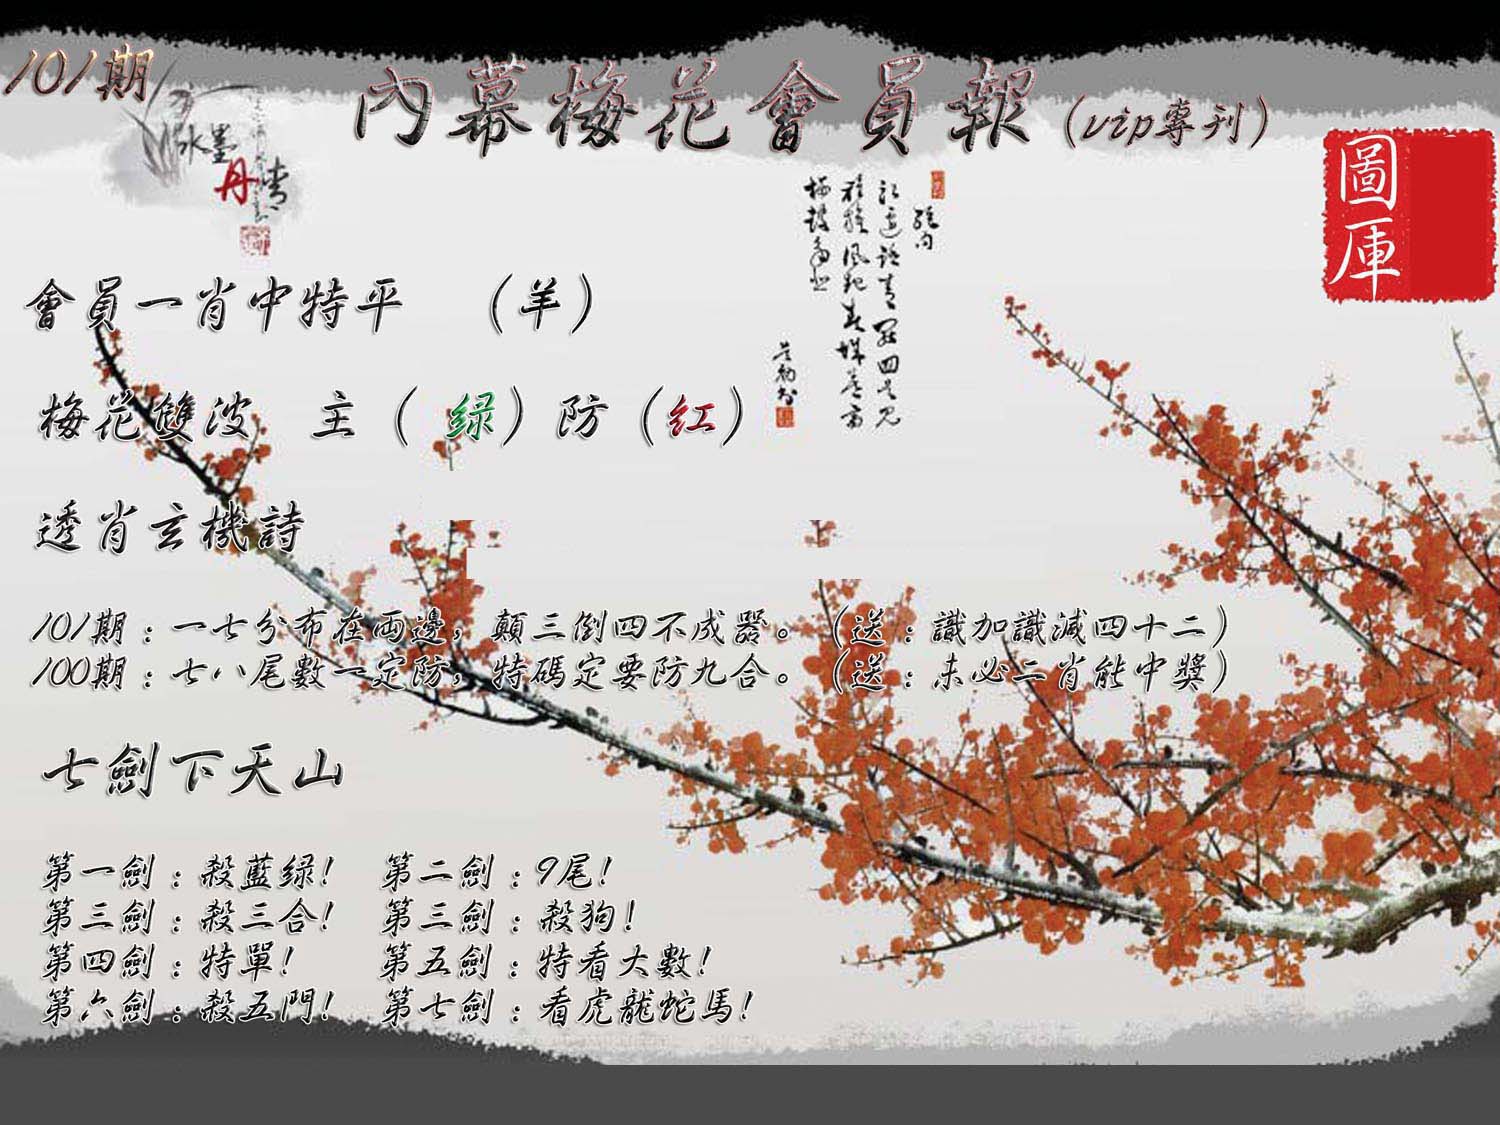 101期
內幕梅花會員報(vip專刊)
水墨
丹青
圖庫
會員一肖中特平 (羊)
梅花雙波 主(绿)防(红)
透肖玄機詩
101期:一七分布在両邊,顛三倒四不成器。(送:識加識減四十二)
100期:七八尾數一定防,特碼定要防九合。(送:未必二肖能中獎)
七劍下天山
第一劍:殺藍绿! 第二劍:9尾!
第三劍:殺三合! 第三劍:殺狗!
第四劍:特單! 第五劍:特看大數!
第六劍:殺五門! 第七劍:看虎龍蛇馬!